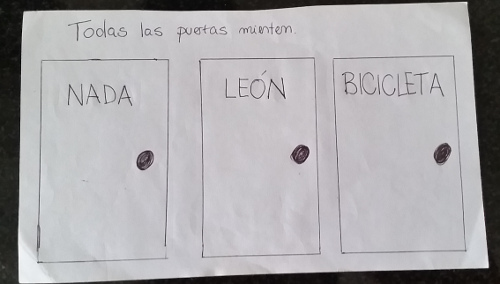 Todas las puertas mienten.
NADA
LEÓN
BICICLETA